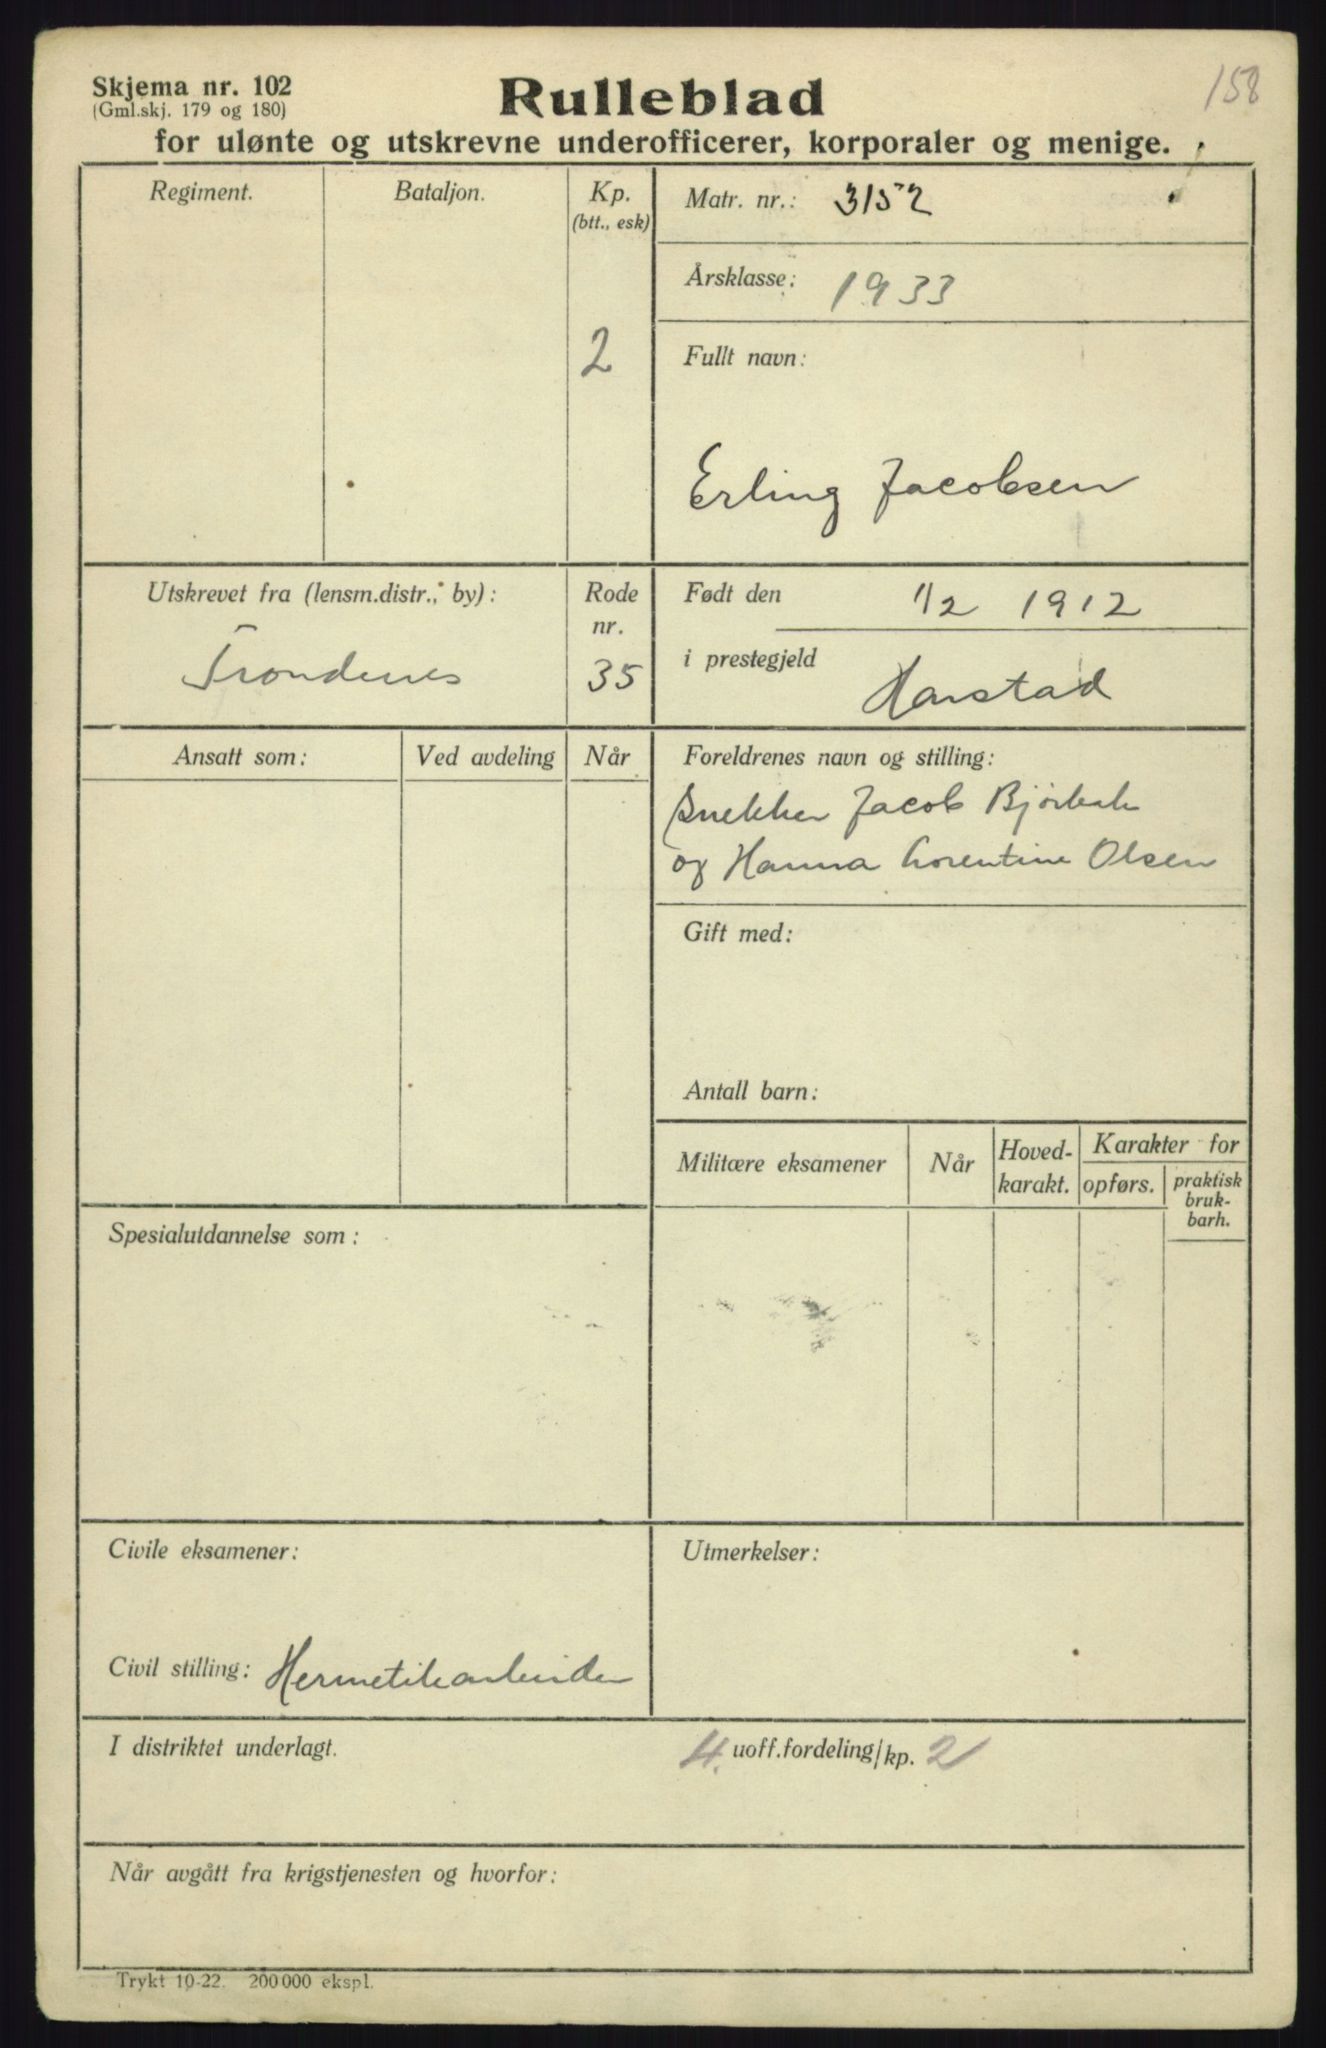 158
Skjema nr. 102
(Gml.skj. 179 og 180)
Rulleblad
for ulønte og utskrevne underofficerer, korporaler og menige.
Regiment.
Bataljon.
Kp.
(btt., esk)
2
Matr. nr.: 3152
Årsklasse: 1933
Fullt navn:
Erling Jacobsen
Utskrevet fra (lensm.distr., by):
Trondenes
Rode
nr.
35
Født den 1/2 1912
i prestegjeld Harstad
Ansatt som:
Ved avdeling
Når
Foreldrenes navn og stilling:
Snekker Jacob
og Hanna Lorentine Olsen
Gift med:
Antall barn:
Militære eksamener
Når
Hoved-
karakt.
Karakter for
opførs.
praktisk
bruk-
barh.
Spesialutdannelse som:
Civile eksamener:
Civil stilling: Hermetikarbeider
Utmerkelser:
I distriktet underlagt.
4. uoff.fordeling/kp. 2
Når avgått fra krigstjenesten og hvorfor:
Trykt 10-22. 200 000 ekspl.